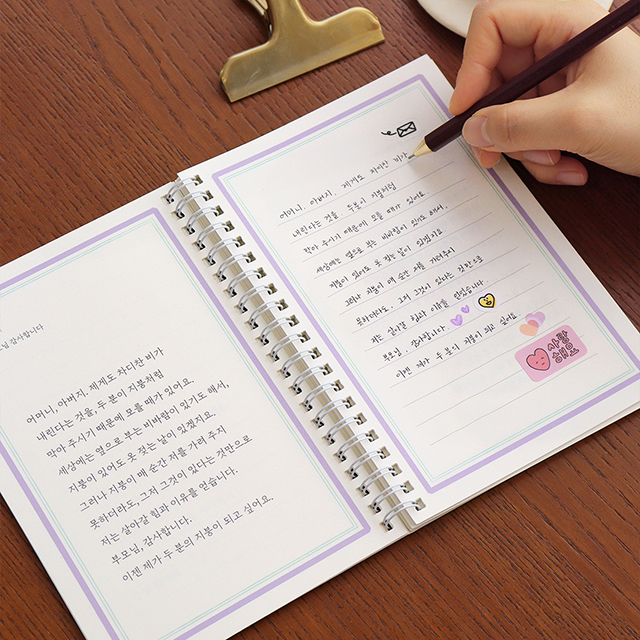 님 감사합니다
어머니, 아버지. 제게도 차디찬 비가
내린다는 것을, 두 분이 지붕처럼
막아 주시기 때문에 모를 때가 있어요.
세상에는 옆으로 부는 비바람이 있기도 해서,
지붕이 있어도 옷 젖는 날이 있겠지요.
그러나 지붕이 매 순간 저를 가려 주지
못하더라도, 그저 그것이 있다는 것만으로
저는 살아갈 힘과 이유를 얻습니다.
부모님, 감사합니다.
이젠 제가 두 분의 지붕이 되고 싶어요.
어머니, 아버지. 제게도 차디찬 비가
내린다는 것을, 두 분이 지붕처럼
막아 주시기 때문에 모를 때가 있어요.
세상에는 옆으로 부는 비바람이 있기도 해서,
지붕이 있어도 옷 젖는 날이 있겠지요
그러나 지붕이 매 순간 저를 가려주지
못하더라도, 그저 그것이 있다는 것만으로
저는 살아갈 힘과 이유를 얻습니다
부모님, 감사합니다
이젠 제가 두 분의 지붕이 되고 싶어요
사랑
해요